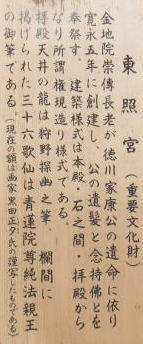 東照宮(重要文化財)
金地院崇傳長老が徳川家康公の遺命に依り
寛永五年に創建し 公の遺髪と念持佛とを
奉祭す。 建築様式は本殿・石之間・拝殿から
なり所謂権現造り様式である。
拝殿天井の龍は狩野探幽之筆 欄間に
掲げられた三十六歌仙は青蓮院尊純法親王
の御筆である(現在の額は画家 黒田正夕氏の謹写したものである)